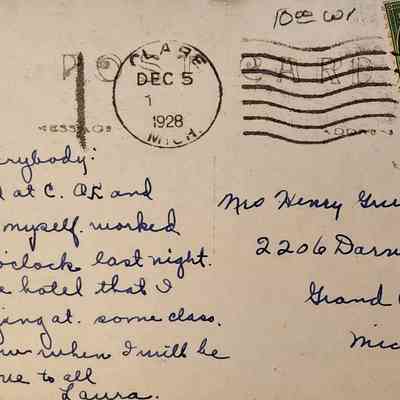 POST CARD
CLARE
DEC 5
1
1928
MICH.
MESSAGE
ADDRE
rybody:
at C. OK and
myself. worked
o'clock last night.
hotel that I
ing at. some class.
when I will be
to all
Laura.
Mrs Henry
2206
Grand
Mic